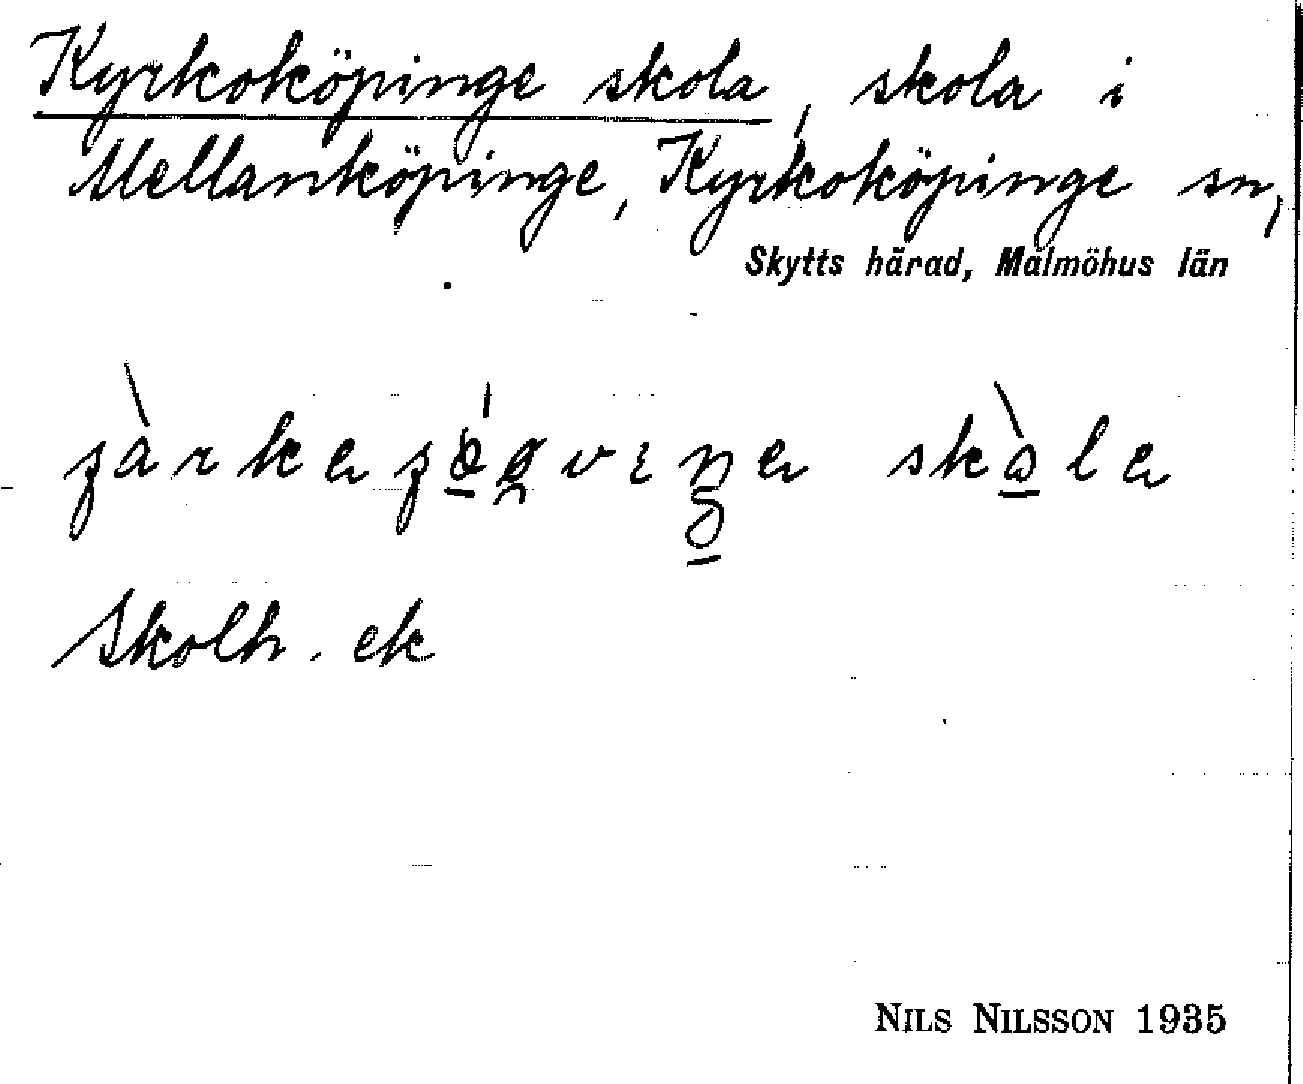 Kyrkoköpinge skola, skola i
Mellanköpinge, Kyrkoköpinge sn,
Skytts härad, Malmöhus län
Skolh. ek
NILS NILSSON 1935